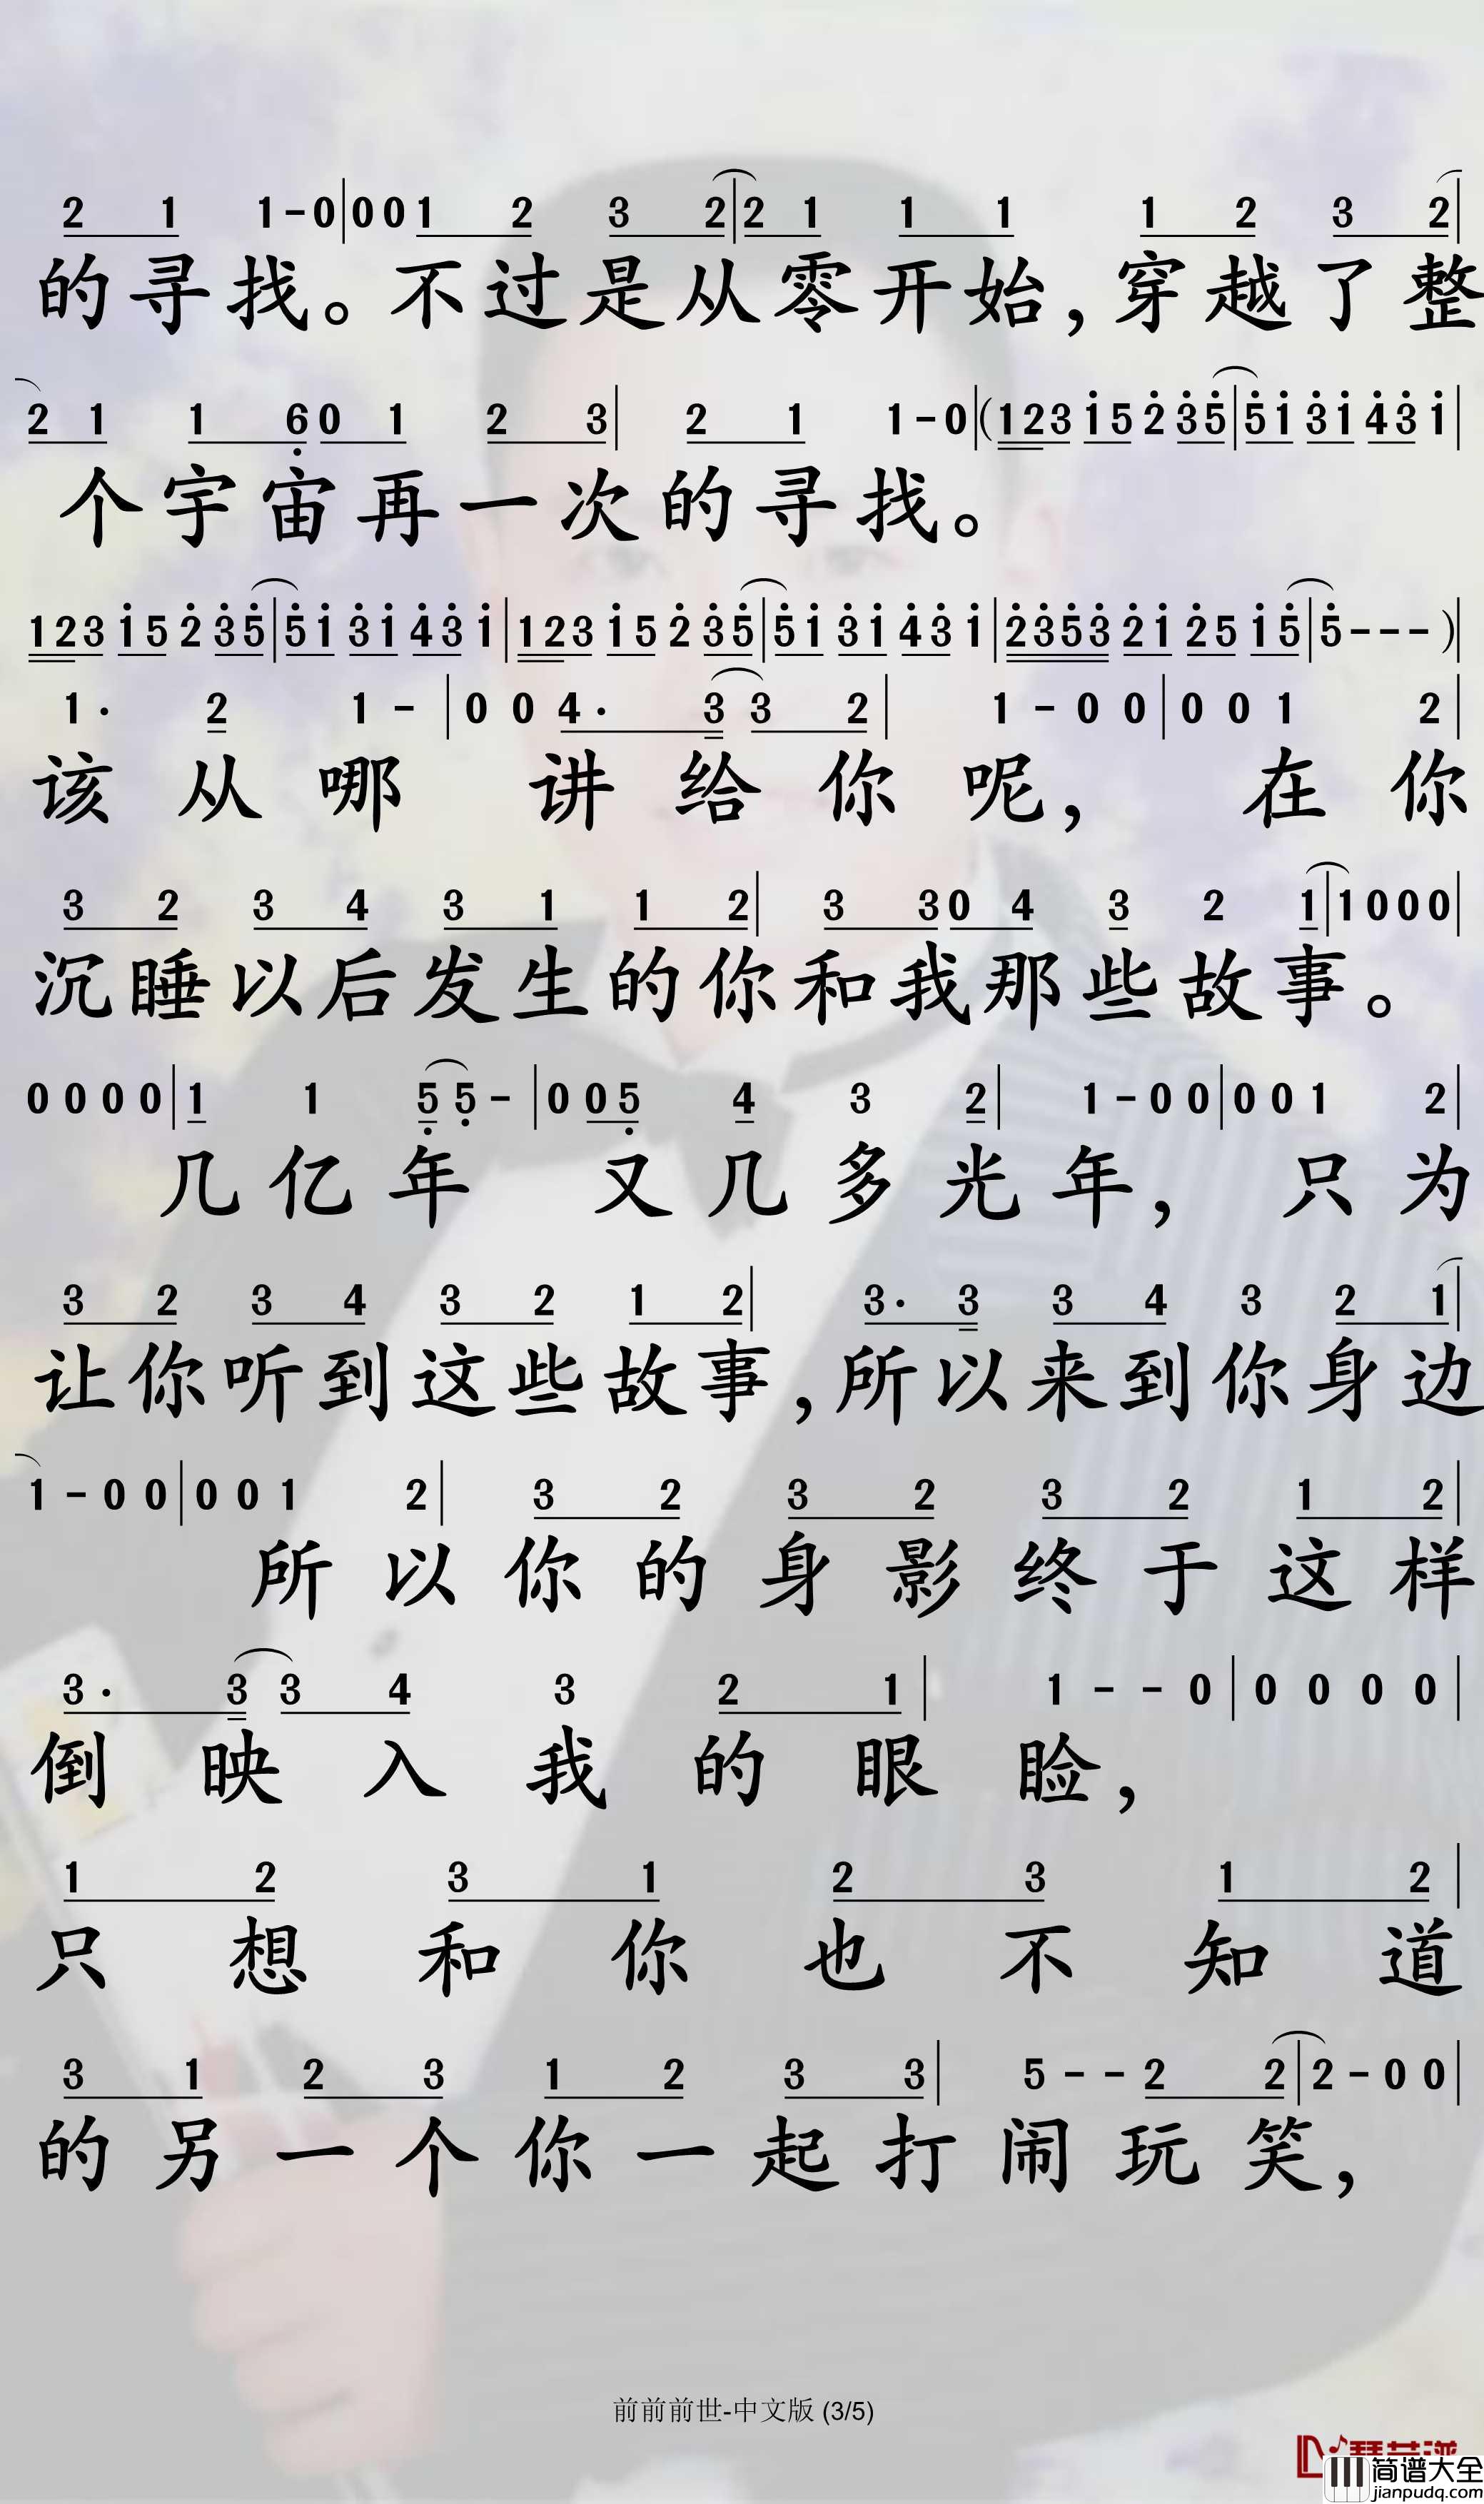 2 1 1-0|0 0 1 2 3 2|2 1 1 1 1 2 3 2|
的寻找。不过是从零开始,穿越了整
2 1 1 6 0 1 2 3| 2 1 1-0|(1 2 3 1 5 2 3 5|5 1 3 1 4 3 1|
个宇宙再一次的寻找。
1 2 3 1 5 2 3 5|5 1 3 1 4 3 1|1 2 3 1 5 2 3 5|5 1 3 1 4 3 1|2 3 5 3 2 1 2 5 1 5|5---)|
1· 2 1 - |0 0 4· 3 3 2| 1 - 0 0|0 0 1 2|
该从哪讲给你呢,在你
3 2 3 4 3 1 1 2| 3 3 0 4 3 2 1|1 0 0 0|
沉睡以后发生的你和我那些故事。
0 0 0 0|1 1 5 5 - |0 0 5 4 3 2| 1 - 0 0|0 0 1 2|
几亿年又几多光年,只为
3 2 3 4 3 2 1 2| 3· 3 3 4 3 2 1|
让你听到这些故事,所以来到你身边
1 - 0 0|0 0 1 2| 3 2 3 2 3 2 1 2|
所以你的身影终于这样
3· 3 3 4 3 2 1| 1 - - 0|0 0 0 0|
倒映入我的眼睑,
1 2 3 1 2 3 1 2|
只想和你也不知道
3 1 2 3 1 2 3 3| 5 - - 2 2|2 - 0 0|
的另一个你一起打闹玩笑,
前前前世-中文版 (3/5)
简谱大全
jianpudq.com